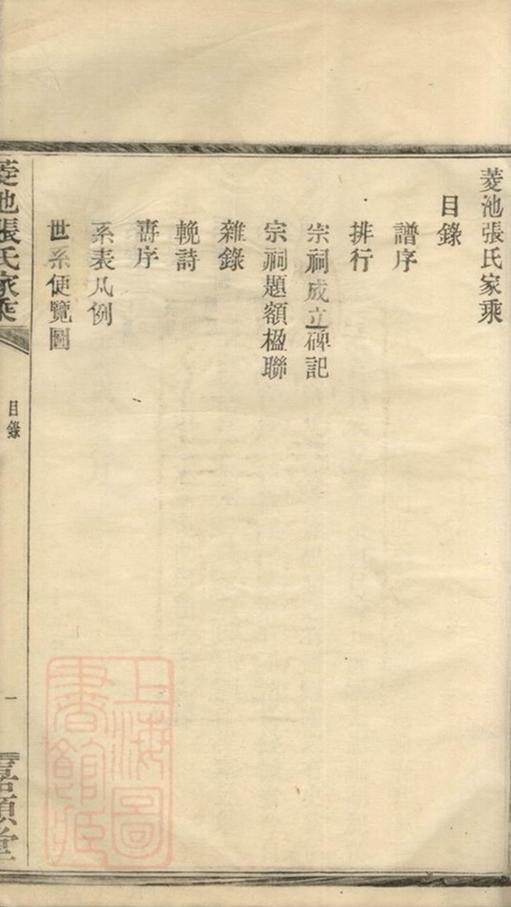 菱池張氏家乘
目錄
譜序
排行
宗祠成立碑記
宗祠題額楹聯
雜錄
輓詩
壽序
系表凡例
世系便覽圖
菱池張氏家乘
目錄
一
上海圖
書館藏